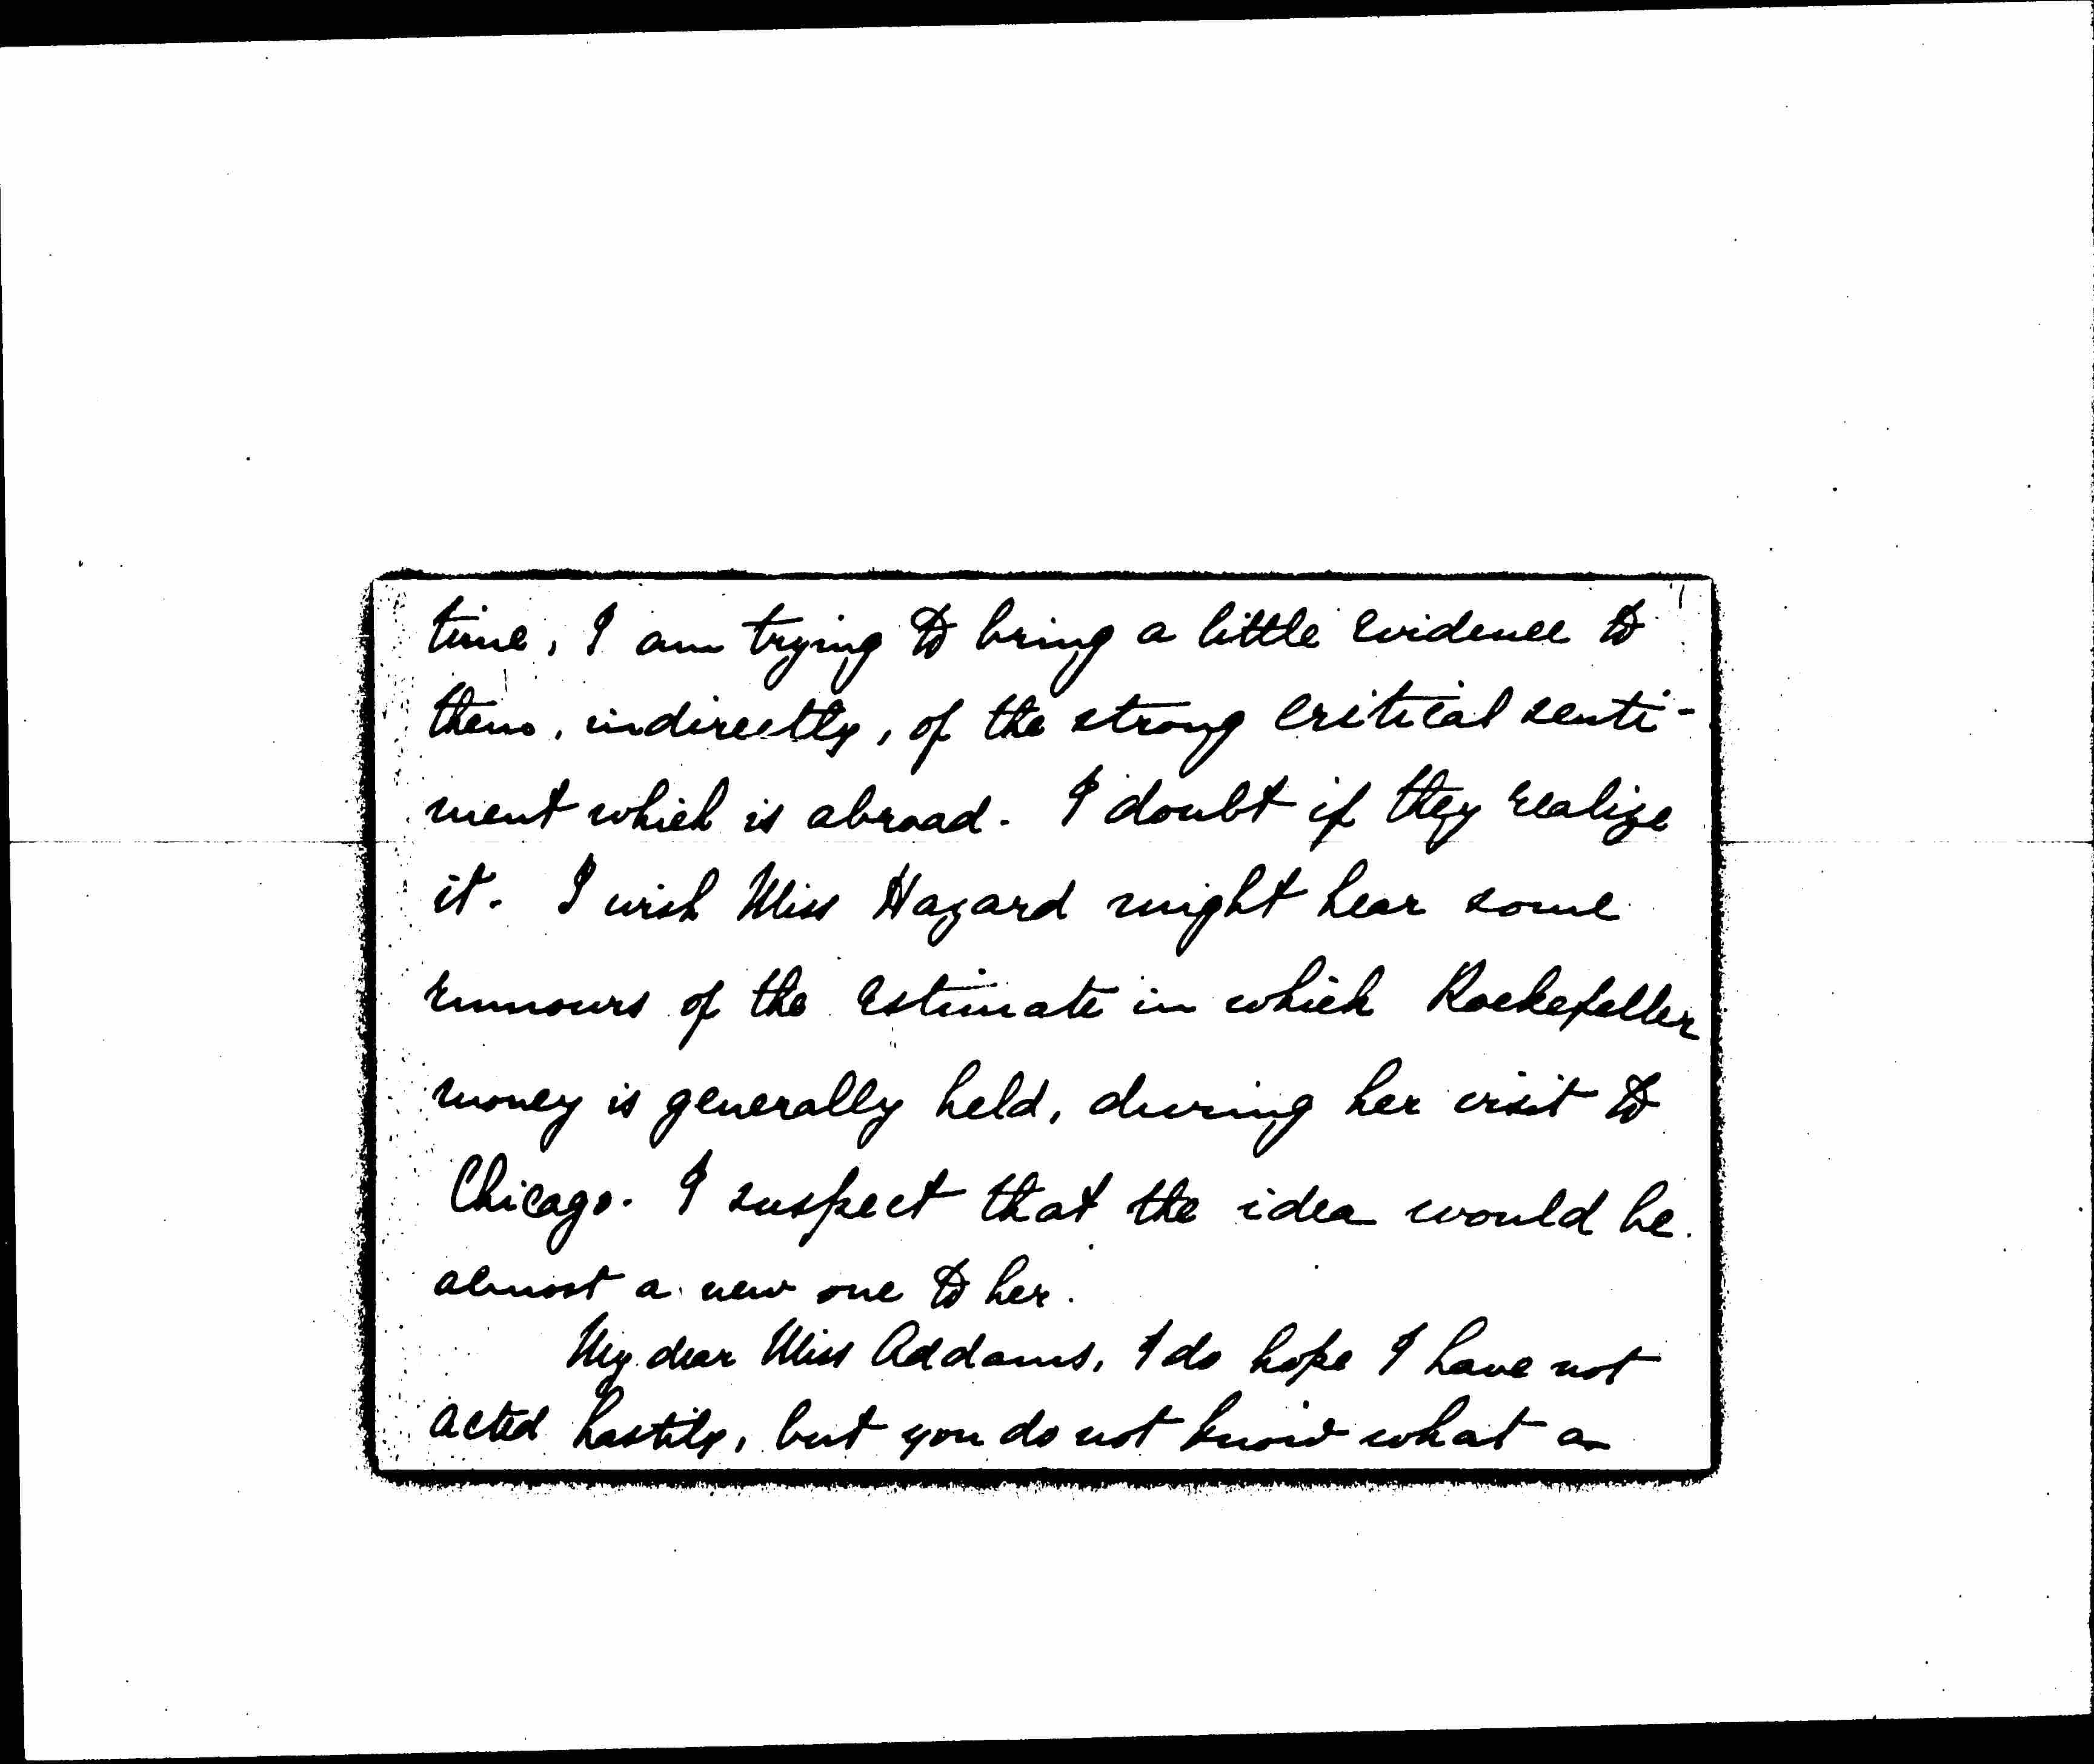 time, I am trying to bring a little evidence to
them, indirectly, of the strong critical senti-
ment which is abroad. I doubt if they realize
it. I wish Miss Hazard might hear some
rumours of the estimate in which Rockefeller
money is generally held, during her visit to
Chicago. I suspect that the idea would be
almost a new one to her.
My dear Miss Addams, I do hope I have not
acted hastily, but you do not know what a